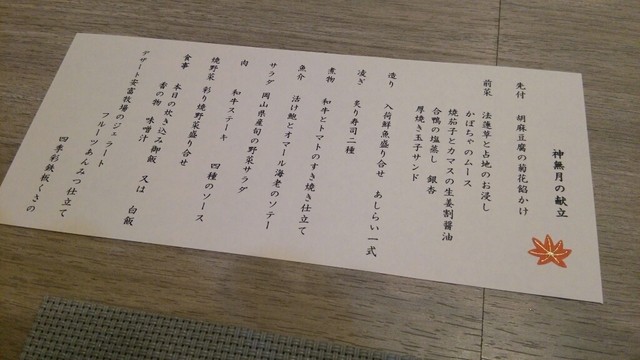 神無月の献立
先付　胡麻豆腐の菊花餡かけ
前菜　法蓮草と占地のお浸し
かぼちゃのムース
焼茄子とカマスの生姜割醤油
合鴨の塩蒸し　銀杏
厚焼き玉子サンド
造り　入荷鮮魚盛り合せ　あしらい一式
凌ぎ　炙り寿司二種
煮物　和牛とトマトのすき焼き仕立て
魚介　活け鮑とオマール海老のソテー
サラダ　岡山県産旬の野菜サラダ
肉　和牛ステーキ　四種のソース
焼野菜　彩り焼野菜盛り合せ
食事　本日の炊き込み御飯　又は　白飯
香の物　味噌汁
デザート　安富牧場のジェラート
フルーツあんみつ仕立て
四季彩鉄板くさの